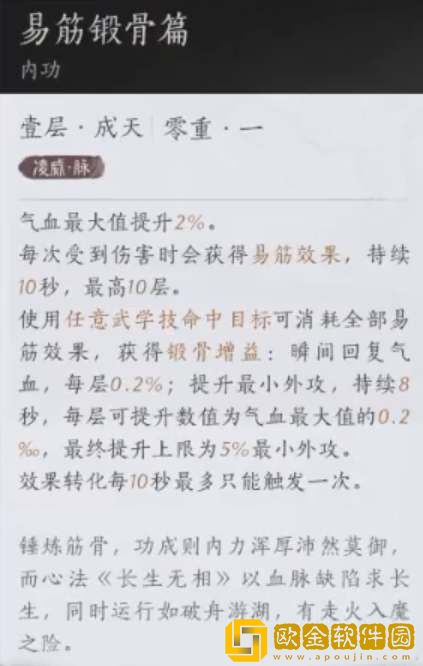 易筋锻骨篇
内功
壹层·成天 零重·一
凌威·脉
气血最大值提升2%。
每次受到伤害时会获得易筋效果，持续
10秒，最高10层。
使用任意武学技命中目标可消耗全部易
筋效果，获得锻骨增益：瞬间回复气
血，每层0.2%；提升最小外攻，持续8
秒，每层可提升数值为气血最大值的0.2
‰，最终提升上限为5%最小外攻。
效果转化每10秒最多只能触发一次。
锤炼筋骨，功成则内力浑厚沛然莫御，
而心法《长生无相》以血脉缺陷求长
生，同时运行如破舟游湖，有走火入魔
之险。
欧金软件园
www.apoujin.com